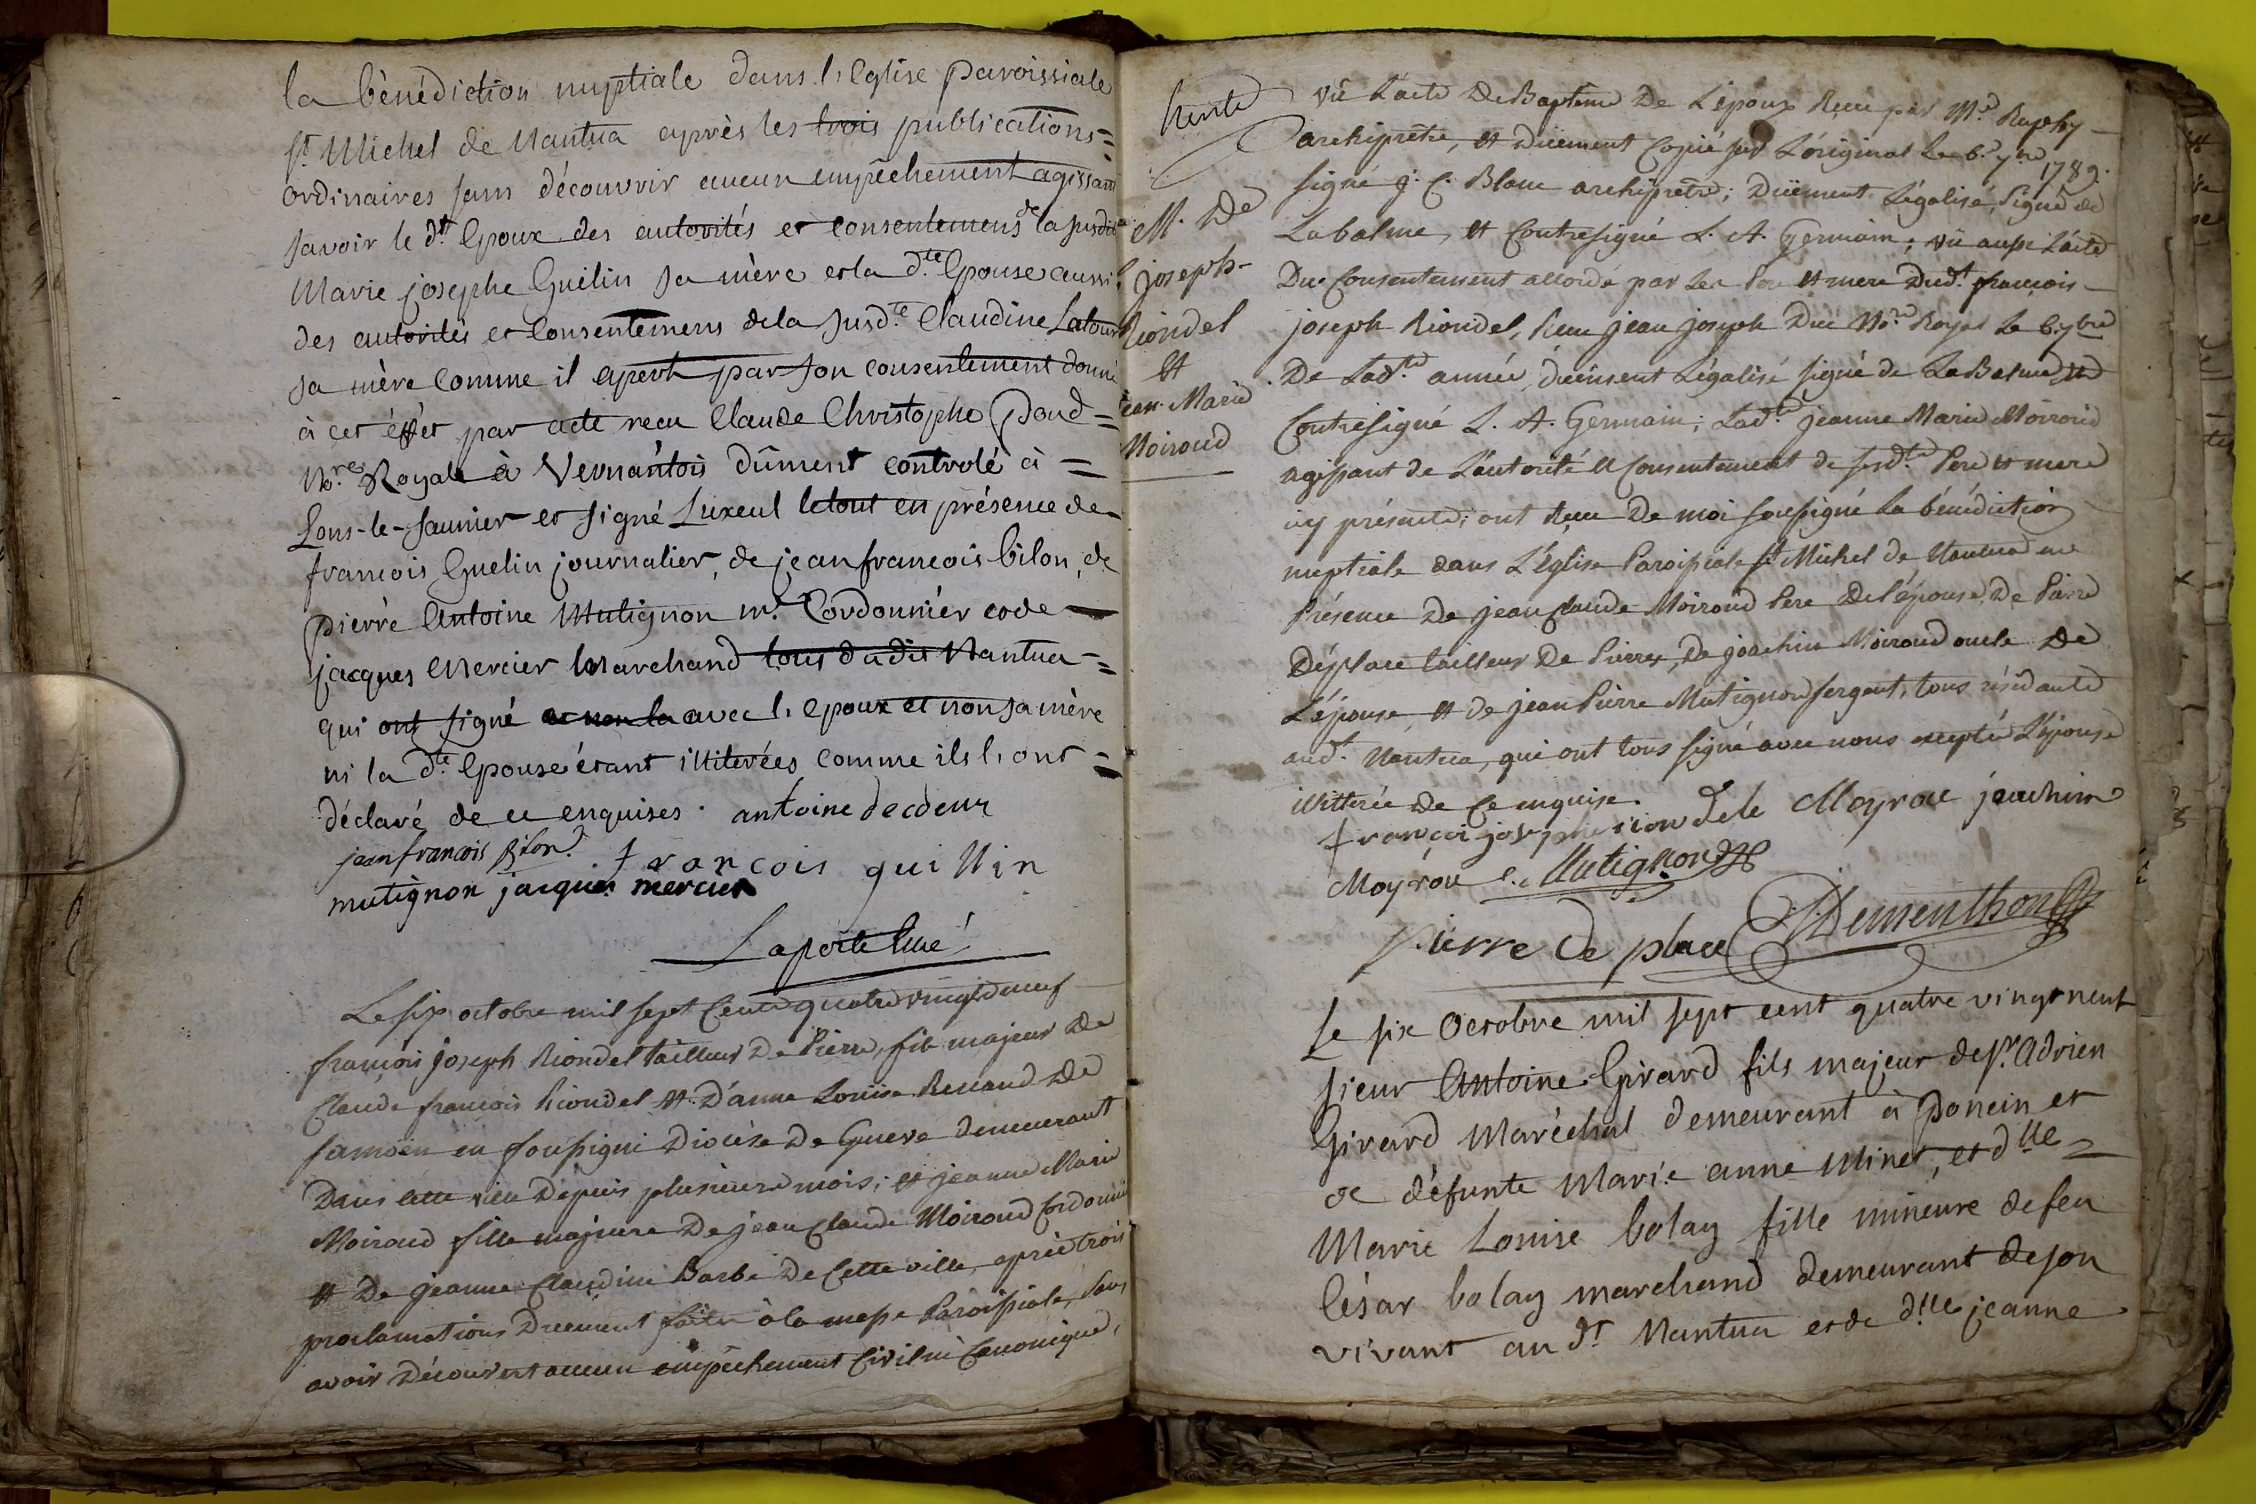 la bènédiction nuptiale dans l'Eglise paroissiale
St Michel de Nantua après les trois publications =
ordinaires sans découvrir aucun empêchement agissant
savoir le dt Epoux des autorités et consentemens de la susdte
Marie josephe Guélin sa mère et la dte Epouse aussi
des autorités et consentemens de la susdte Claudine Latour
sa mère comme il apert par son consentement donné
à cet éffet par acte recu Claude Christophe =
Nre Royale à Vernantois dûment controlé à =
Lons-le-Saunier et signé Luxeul le tout en présence de
francois Guelin journalier, de jean francois bilon, de
pierre Antoine Mutignon mr. Cordonnier et de
jacques Mercier Marchand tous du dit Nantua =
qui ont signé et non la avec l'epoux et non sa mère
ni la dte Epouse étant illiterées comme ils l'ont =
déclaré de ce enquises. antoine decoeur
jean francois Bilon. francois quillin
mutignon jacques mercier
Laporte Curé
Le six octobre mil sept Cent quatre vingt neuf
francois joseph Riondel tailleur De Pierre, fils majeur De
Claude francois Riondel et D'anne Louise Renand De
samoën en fousigni Diocèse De Geneve demeurant
Dans cette ville Depuis plusieurs mois; et jeanne Marie
Moiroud fille majeure De jean Claude Moiroud Cordonnier
et De jeanne Claudine Barbe De Cette ville, après trois
proclamations Duement faites à la messe Paroissiale, sans
avoir Découvert aucun empêchement Civil ni Canonique,
M. De
joseph
Riondel
et
jean. Marie
Moiroud
vû L'acte De Baptême De L'époux Recu par Mr
archiprêtre, et Duement Copié sur L'original Le 6. 7re 1789.
signé j. C. Blanc archiprêtre; Duement Légalisé, Signé de
Labalme, et Contresigné L. A. Germain; vû aussi L'acte
Du Consentement accordé par Les Pere et mere Dudt francois
joseph Riondel, Recu jean joseph Duc Nre Royal Le 6. 7bre
De Ladte année, duement Légalisé signé de La Balme et
Contresigné L. A. Germain; Ladte jeanne Marie Moiroud
agissant de L'autorité et Consentement de sesdts Pere et mere
icy présents; ont Recu De moi soussigné La bénédiction
nuptiale dans L'Église Paroissiale St Michel de Nantua en
Présence De jean Claude Moiroud Pere De l'épouse, De Pierre
Déplace tailleur De Pierres, De joachim Moiroud oncle De
L'épouse et de jean Pierre Mutignon sergent, tous résidants
audt. Nantua, qui ont tous signé avec nous excepté L'épouse
illitterée De Ce enquise.
françoi joseph riondel Moyrou jouachim
Moyrou Mutignon
pierre De place Dementhon
Le six Octobre mil sept cent quatre vingt neuf
sieur Antoine Girard fils majeur de sr. Adrien
Girard Maréchal demeurant à Poncin et
de défunte Marie anne Minet, et dlle =
Marie Louise bolay fille mineure de feu
César bolay marchand demeurant de son
vivant au dt Nantua et de dlle jeanne